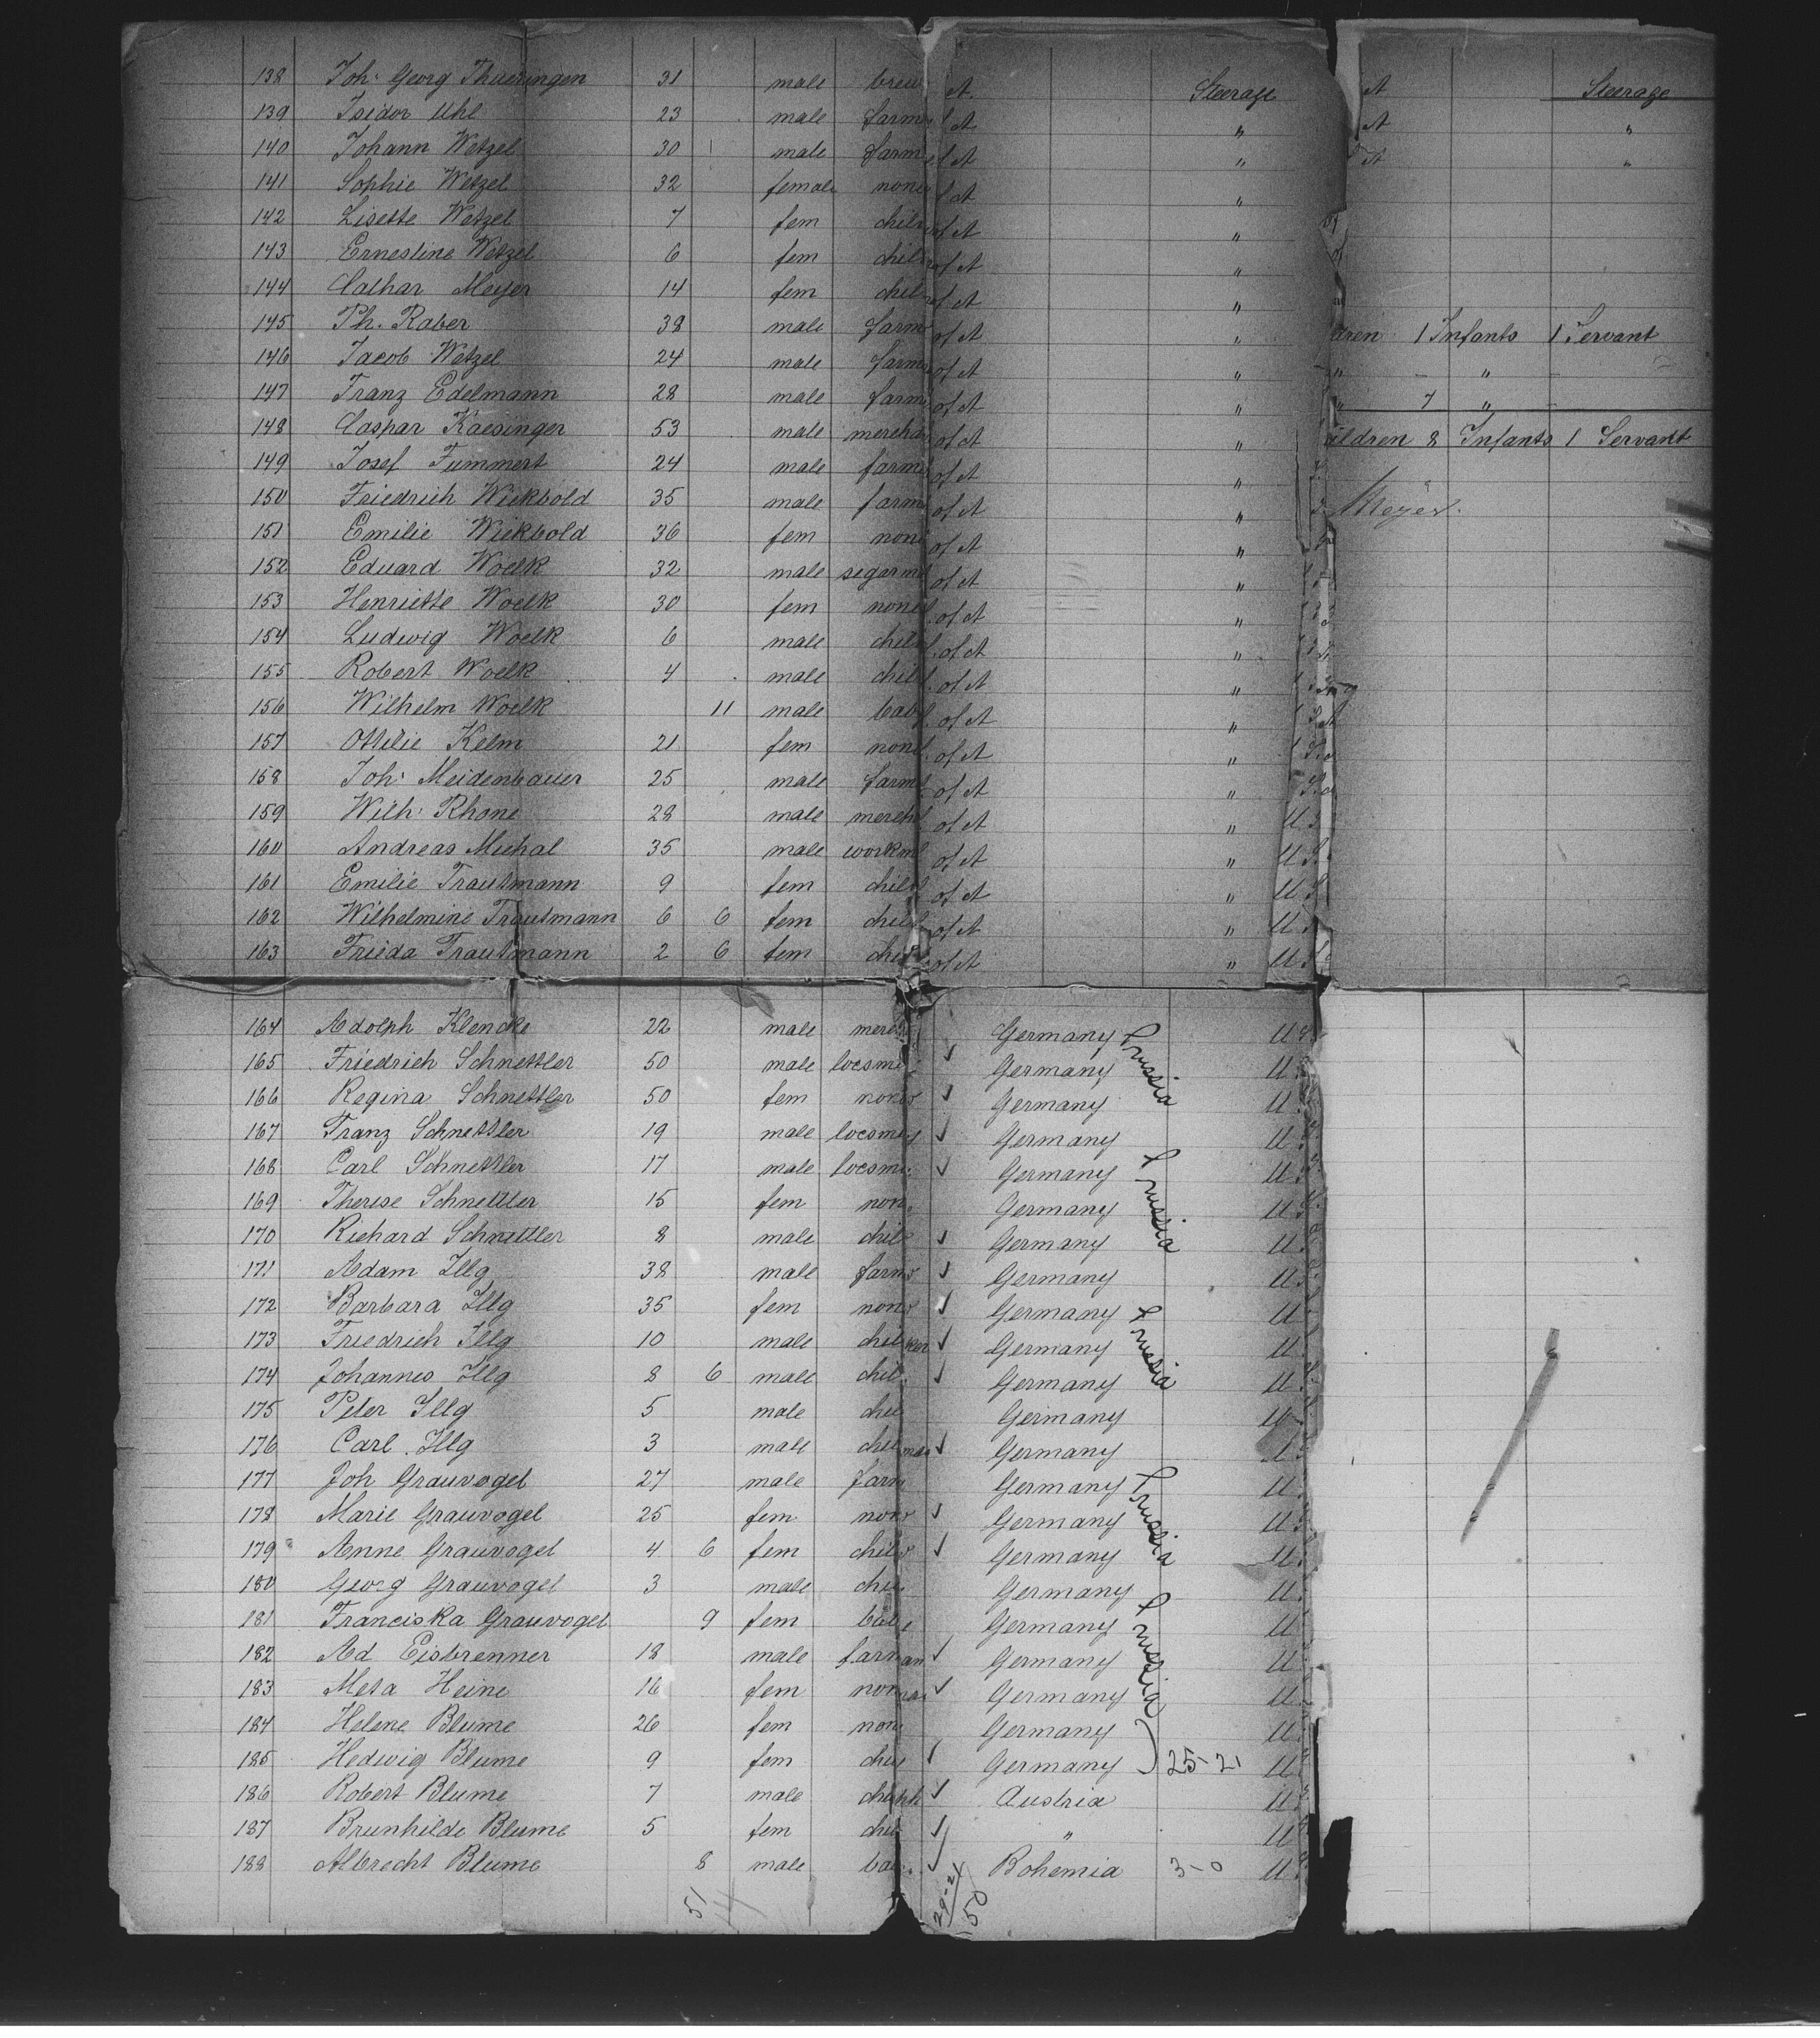 138 Joh. Georg Thueringen 31 male brew A. Steerage A Steerage
139 Isidor Uhl 23 male farm of A " A "
140 Johann Wetzel 30 male farm of A " A "
141 Sophie Wetzel 32 female none of A "
142 Lisette Wetzel 7 fem chil of A "
143 Ernestine Wetzel 6 fem chil of A "
144 Cathar Meyer 14 fem chil of A "
145 Ph. Raber 38 male farm of A " dren 1 Infants 1 Servant
146 Jacob Wetzel 24 male farm of A " " - " -
147 Franz Edelmann 28 male farm of A " " 7 " -
148 Caspar Kaesinger 53 male merchan of A " ildren 8 Infants 1 Servant
149 Josef Fummert 24 male farm of A "
150 Friedrich Wiekbold 35 male farm of A " Meyer.
151 Emilie Wiekbold 36 fem non of A "
152 Eduard Woelk 32 male segarm of A "
153 Henriette Woelk 30 fem none of A "
154 Ludwig Woelk 6 male chil of A "
155 Robert Woelk 4 male chil of A "
156 Wilhelm Woelk 11 male bab of A "
157 Ottilie Kelm 21 fem non of A "
158 Joh. Meidenbauer 25 male farm of A "
159 Wilh. Rhone 28 male merch of A " U.S
160 Andreas Michal 35 male workm of A " U.S
161 Emilie Trautmann 9 fem chil of A " U S
162 Wilhelmine Trautmann 6 6 fem child of A " U.
163 Frieda Trautmann 2 6 fem chil of A " U.S
164 Adolph Klencke 22 male merc Germany Prussia U S
165 Friedrich Schnettler 50 male locsmi Germany U.
166 Regina Schnettler 50 fem none Germany U.
167 Franz Schnettler 19 male locsmi Germany U.
168 Carl Schnettler 17 male locsmi Germany Prussia U.
169 Therese Schnettler 15 fem non Germany U S
170 Richard Schnettler 8 male chil Germany U.
171 Adam Illg 38 male farm Germany U S
172 Barbara Illg 35 fem non Germany Prussia U
173 Friedrich Illg 10 male chil Germany U.
174 Johannes Illg 8 6 male chil Germany U.
175 Peter Illg 5 male chil Germany U
176 Carl Illg 3 male chil Germany
177 Joh Grauvogel 27 male farm Germany Prussia U.
178 Marie Grauvogel 25 fem non Germany U
179 Anne Grauvogel 4 6 fem chil Germany U.
180 Georg Grauvogel 3 male chil Germany U.
181 Franciska Grauvogel 9 fem bab Germany Prussia U
182 Ad Eisbrenner 18 male farm Germany U
183 Meta Heine 16 fem non Germany U
184 Helene Blume 26 fem non Germany U.
185 Hedwig Blume 9 fem chil Germany 25-21 U
186 Robert Blume 7 male chil Austria U.
187 Brunhilde Blume 5 fem chil " U
188 Albrecht Blume 8 male bab Bohemia 3-0 U
51 29-21 50